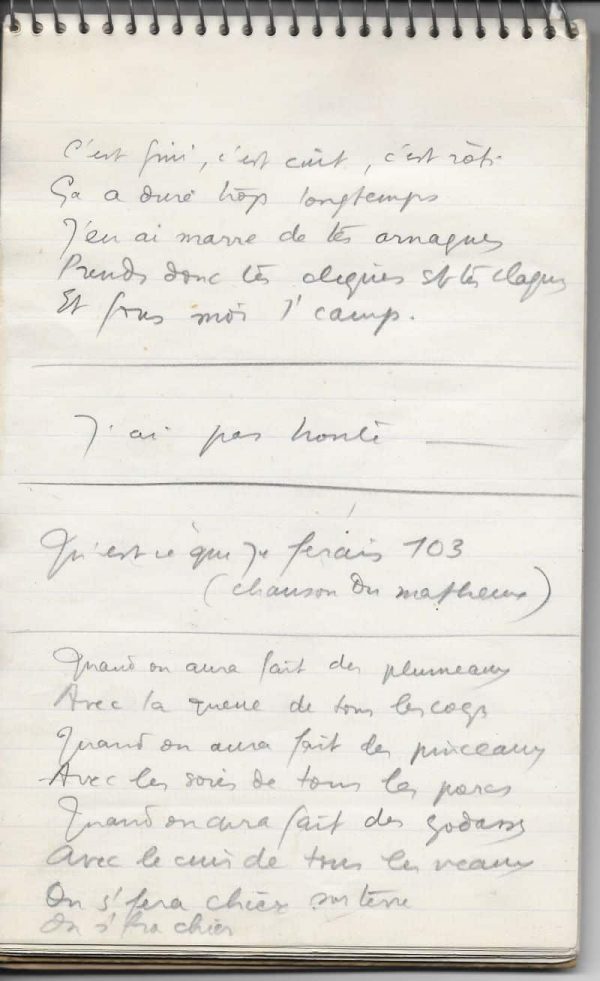 C'est fini, c'est cuit, c'est rôti
Ça a duré trop longtemps
J'en ai marre de tes arnaques
Prends donc tes cliques et tes claques
Et fous moi l'camp.
J'ai pas honte
Qu'est ce que je ferais 103
(chanson du matheux)
Quand on aura fait des plumeaux
Avec la queue de tous les coqs
Quand on aura fait des pinceaux
Avec les soies de tous les porcs
Quand on aura fait des godasses
Avec le cuir de tous les veaux
On s'fera chier sur terre
On s'fra chier